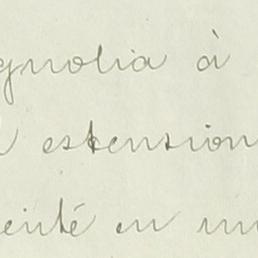 gnolia à
extension
enté en